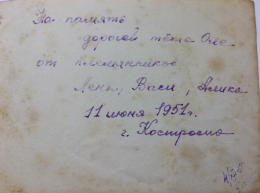 На память
дорогой тёте Оле
от племянников
Лены, Васи, Алика
11 июня 1951 г.
г. Кострома